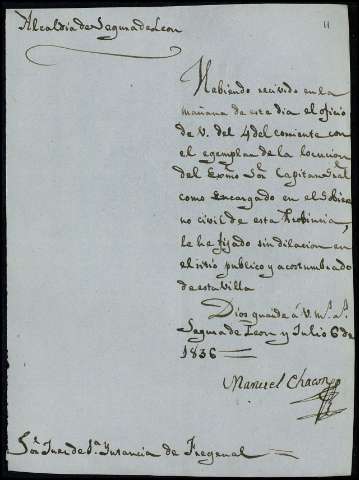 Alcaldia de Segura de Leon
11
Habiendo recivido en la
mañana de este dia el oficio
de V. del 4 del corriente con
el egemplar de la locucion
del Exmo Sor Capitan Gral
como encargado en el Gobier
no civil de esta Probincia,
le he fijado sin dilacion en
el sitio publico y acostumbrado
de esta Villa
Dios guarde á V. ms. as.
Segura de Leon y Julio 6 de
1836
Manuel Chacon
Sor Juez de 1a Instancia de Fregenal